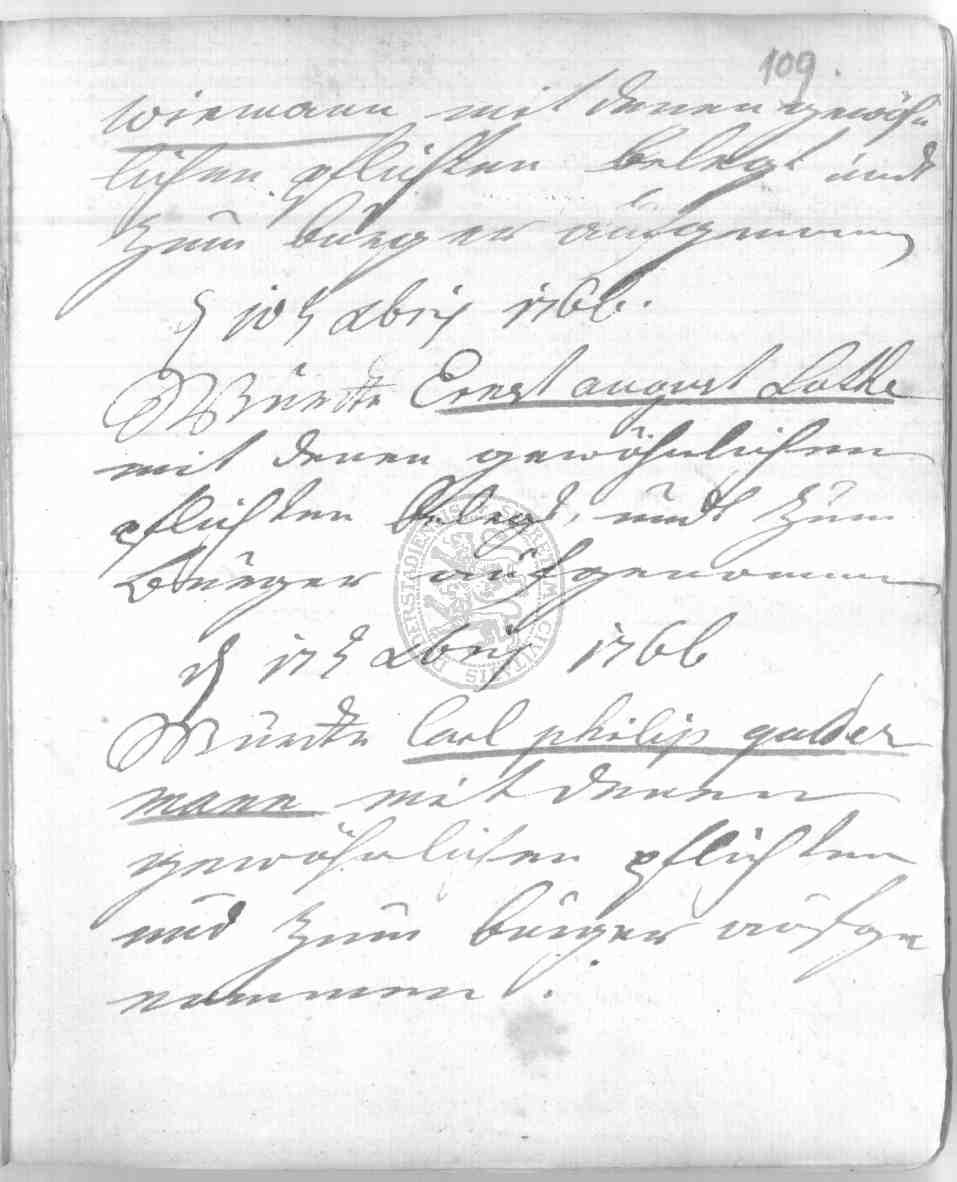 109.
wiemann mit denen gewöhn
lichen pflichten belegt undt
zum bürger aufgenommen
d 10t 1766.
Wurde Ernst august Lotke
mit denen gewöhnlichen
pflichten belegt, undt zum
Bürger aufgenommen
d 17t 1766
Wurde Carl philip
mann mit denen
gewöhnlichen pflichten
und zum bürger aufge
nommen.
CIVITATIS